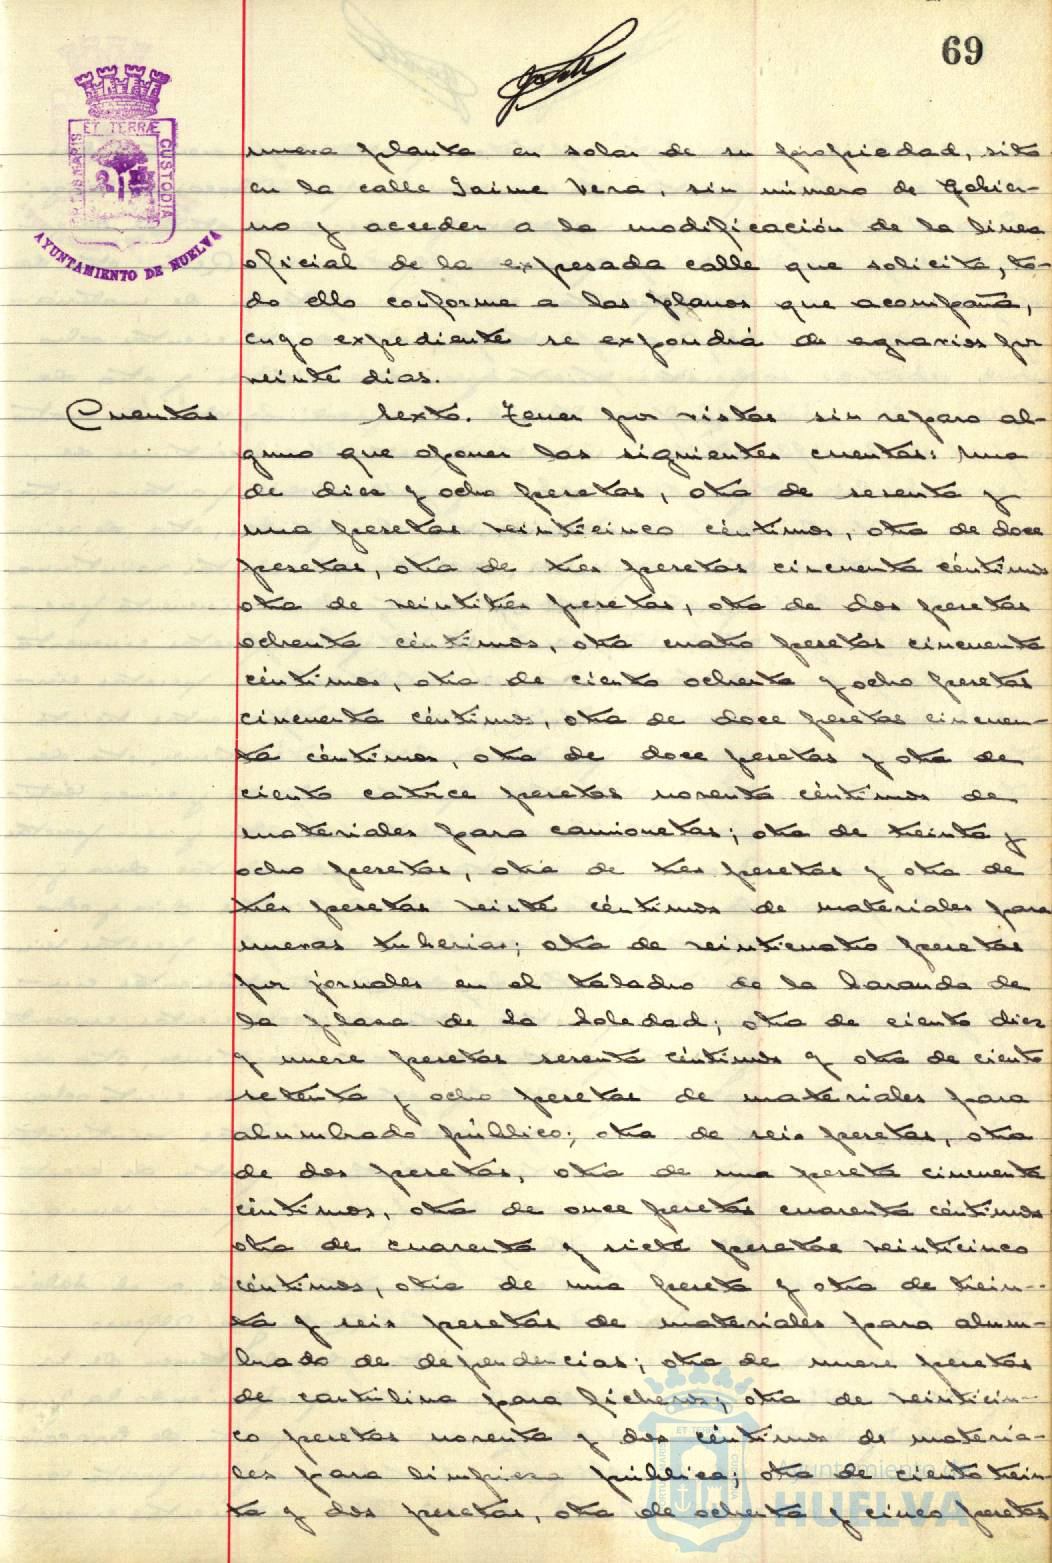 69
PORTUS MARIS ET TERRÆ CUSTODIA
AYUNTAMIENTO DE HUELVA
nueva planta en solar de su propiedad, sito
en la calle Jaime Vera, sin número de Gobier-
no y acceder a la modificación de la linea
oficial de la expesada calle que solicita, to-
do ello conforme a los planos que acompaña,
cuyo expediente se expondrá de agravios por
veinte dias.
Cuentas
Sexto. Tener por vistas sin reparo al-
guno que oponer las siguientes cuentas: Una
de diez y ocho pesetas, otra de sesenta y
una pesetas veinticinco céntimos, otra de doce
pesetas, otra de tres pesetas cincuenta céntimos
otra de veintitres pesetas, otra de dos pesetas
ochenta céntimos, otra cuatro pesetas cincuenta
céntimos, otra de ciento ochenta y ocho pesetas
cincuenta céntimos, otra de doce pesetas cincuen-
ta céntimos, otra de doce pesetas y otra de
ciento catorce pesetas noventa céntimos de
materiales para camionetas; otra de treinta y
ocho pesetas, otra de tres pesetas y otra de
tres pesetas veinte céntimos de materiales para
nuevas tuberias; otra de veinticuatro pesetas
por jornales en el taladro de la baranda de
la plaza de la Soledad; otra de ciento diez
y nueve pesetas sesenta céntimos y otra de ciento
setenta y ocho pesetas de materiales para
alumbrado público; otra de seis pesetas, otra
de dos pesetas, otra de una peseta cincuenta
céntimos, otra de once pesetas cuarenta céntimos
otra de cuarenta y siete pesetas veinticinco
céntimos, otra de una peseta y otra de trein-
ta y seis pesetas de materiales para alum-
brado de dependencias; otra de nueve pesetas
de cartulina para ficheros; otra de veinticin-
co pesetas noventa y dos céntimos de materia-
les para limpieza pública; otra de ciento trein-
ta y dos pesetas, otra de ochenta y cinco pesetas
Ayuntamiento de
HUELVA